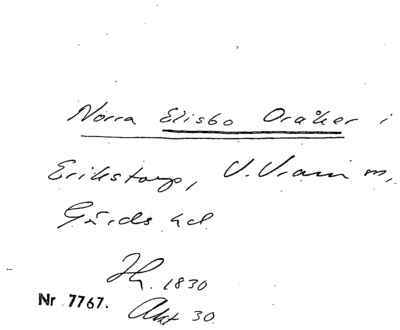 Norra Elisbo Oråker i
Erikstorp, V. Vram m,
Gärds hd
Hg. 1830
Nr 7767.
Akt 30